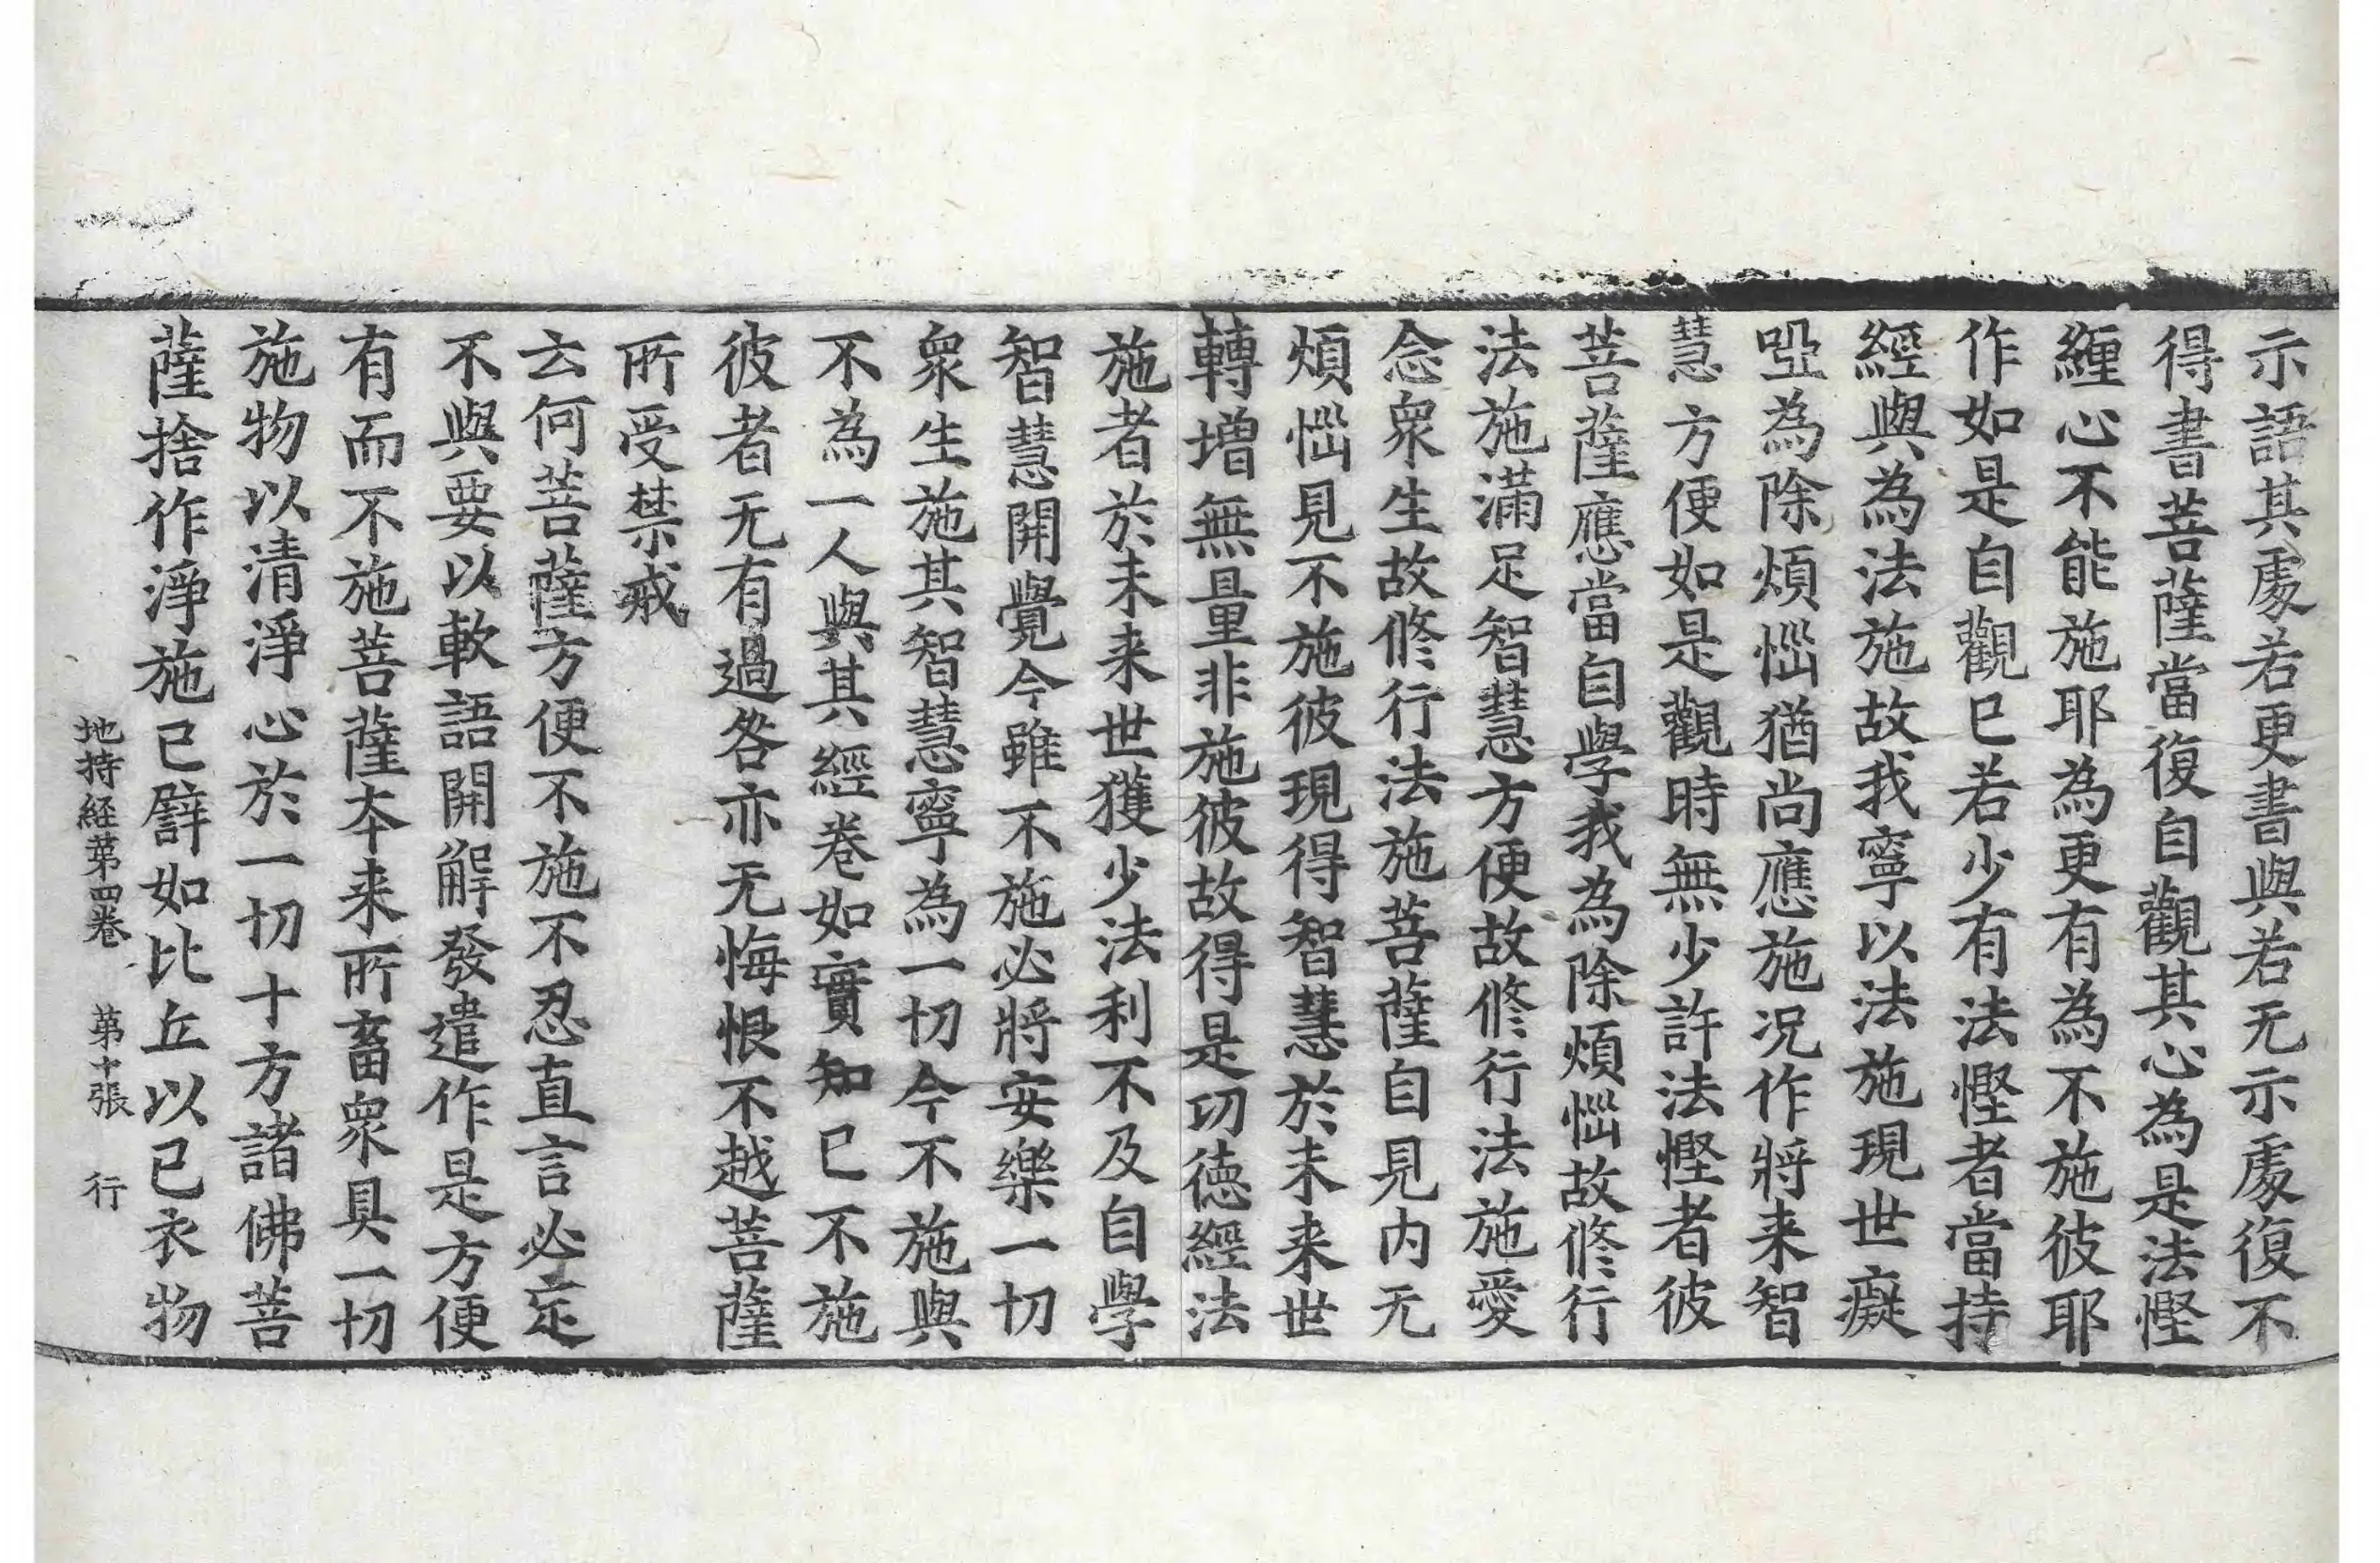 示語其處若更書與若无示處復不
得書菩薩當復自觀其心為是法慳
纏心不能施耶為更有為不施彼耶
作如是自觀已若少有法慳者當持
經與為法施故我寧以法施現世癡
啞為除煩惱猶尚應施况作將来智
慧方便如是觀時無少許法慳者彼
菩薩應當自學我為除煩惱故修行
法施滿足智慧方便故修行法施愛
念衆生故修行法施菩薩自見内无
煩惱見不施彼現得智慧於未来世
轉增無量非施彼故得是功德經法
施者於未来世獲少法利不及自學
智慧開覺今雖不施必將安樂一切
衆生施其智慧寧為一切今不施與
不為一人與其經卷如實知已不施
彼者无有過咎亦无悔恨不越菩薩
所受禁戒
云何菩薩方便不施不忍直言必定
不與要以軟語開解發遣作是方便
有而不施菩薩本来所畜衆具一切
施物以清淨心於一切十方諸佛菩
薩捨作淨施已譬如比丘以已衣物
地持経第四卷 第十張 行